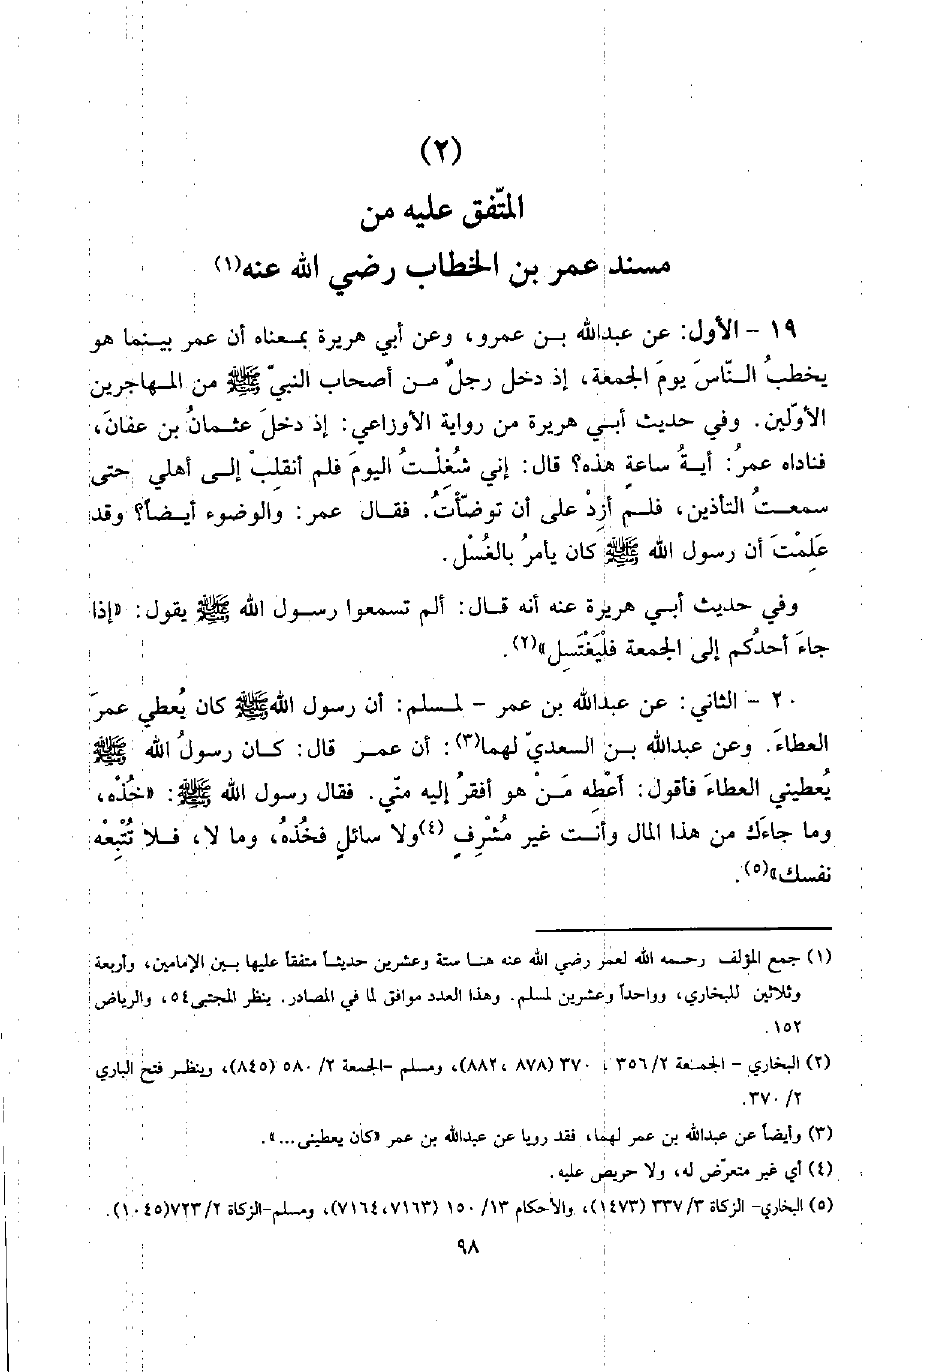 (٢)
المتّفق عليه من
مسند عمر بن الخطاب رضي الله عنه(١)
١٩ - الأول: عن عبدالله بـن عمرو، وعن أبي هريرة بمـعناه أن عمر بيـنما هو
يخطبُ الـنّاسَ يومَ الجمعة، إذ دخل رجلٌ مـن أصحاب النبيّ ﷺ من المـهاجرين
الأوّلين. وفي حديث أبـي هريرة من رواية الأوزاعي: إذ دخلَ عثـمانُ بن عفانَ،
فناداه عمرُ: أيـةُ ساعةٍ هذه؟ قال: إني شُغِلْتُ اليومَ فلم أنقلِبْ إلـى أهلي حتى
سمعـتُ التأذين، فلـم أزِدْ على أن توضّأتُ. فقـال عمر: والوضوء أيـضاً؟ وقد
عَلِمْتَ أن رسول الله ﷺ كان يأمرُ بالغُسْل.
وفي حديث أبـي هريرة عنه أنه قـال: ألم تسمعوا رسـول الله ﷺ يقول: «إذا
جاءَ أحدُكم إلى الجمعة فلْيَغْتَسِل»(٢).
٢٠ - الثاني: عن عبدالله بن عمر - لمـسلم: أن رسول الله ﷺ كان يُعطي عمرَ
العطاءَ. وعن عبدالله بـن السعديّ لهما(٣): أن عمـر قال: كـان رسولُ الله ﷺ
يُعطيني العطاءَ فأقول: أعْطِه مَـنْ هو أفقرُ إليه منّي. فقال رسول الله ﷺ: «خُذْه،
وما جاءَك من هذا المال وأنـت غير مُشْرِفٍ(٤) ولا سائلٍ فخُذْهُ، وما لا، فـلا تُتْبِعْه
نفسك»(٥).
(١) جمع المؤلف رحـمه الله لعمر رضي الله عنه هنـا ستة وعشرين حديثـاً متفقاً عليها بـين الإمامين، وأربعة
وثلاثين للبخاري، وواحداً وعشرين لمسلم. وهذا العدد موافق لما في المصادر. ينظر المجتبى٥٤، والرياض
١٥٢.
(٢) البخاري - الجمـعة ٢/ ٣٥٦، ٣٧٠ (٨٧٨، ٨٨٢)، ومسلم -الجمعة ٢/ ٥٨٠ (٨٤٥)، وينظـر فتح الباري
٢/ ٣٧٠.
(٣) وأيضاً عن عبدالله بن عمر لهما، فقد رويا عن عبدالله بن عمر «كان يعطيني...».
(٤) أي غير متعرّض له، ولا حريص عليه.
(٥) البخاري- الزكاة ٣/ ٣٣٧ (١٤٧٣)، والأحكام ١٣/ ١٥٠ (٧١٦٣، ٧١٦٤)، ومسلم-الزكاة ٢/ ٧٢٣(١٠٤٥).
٩٨